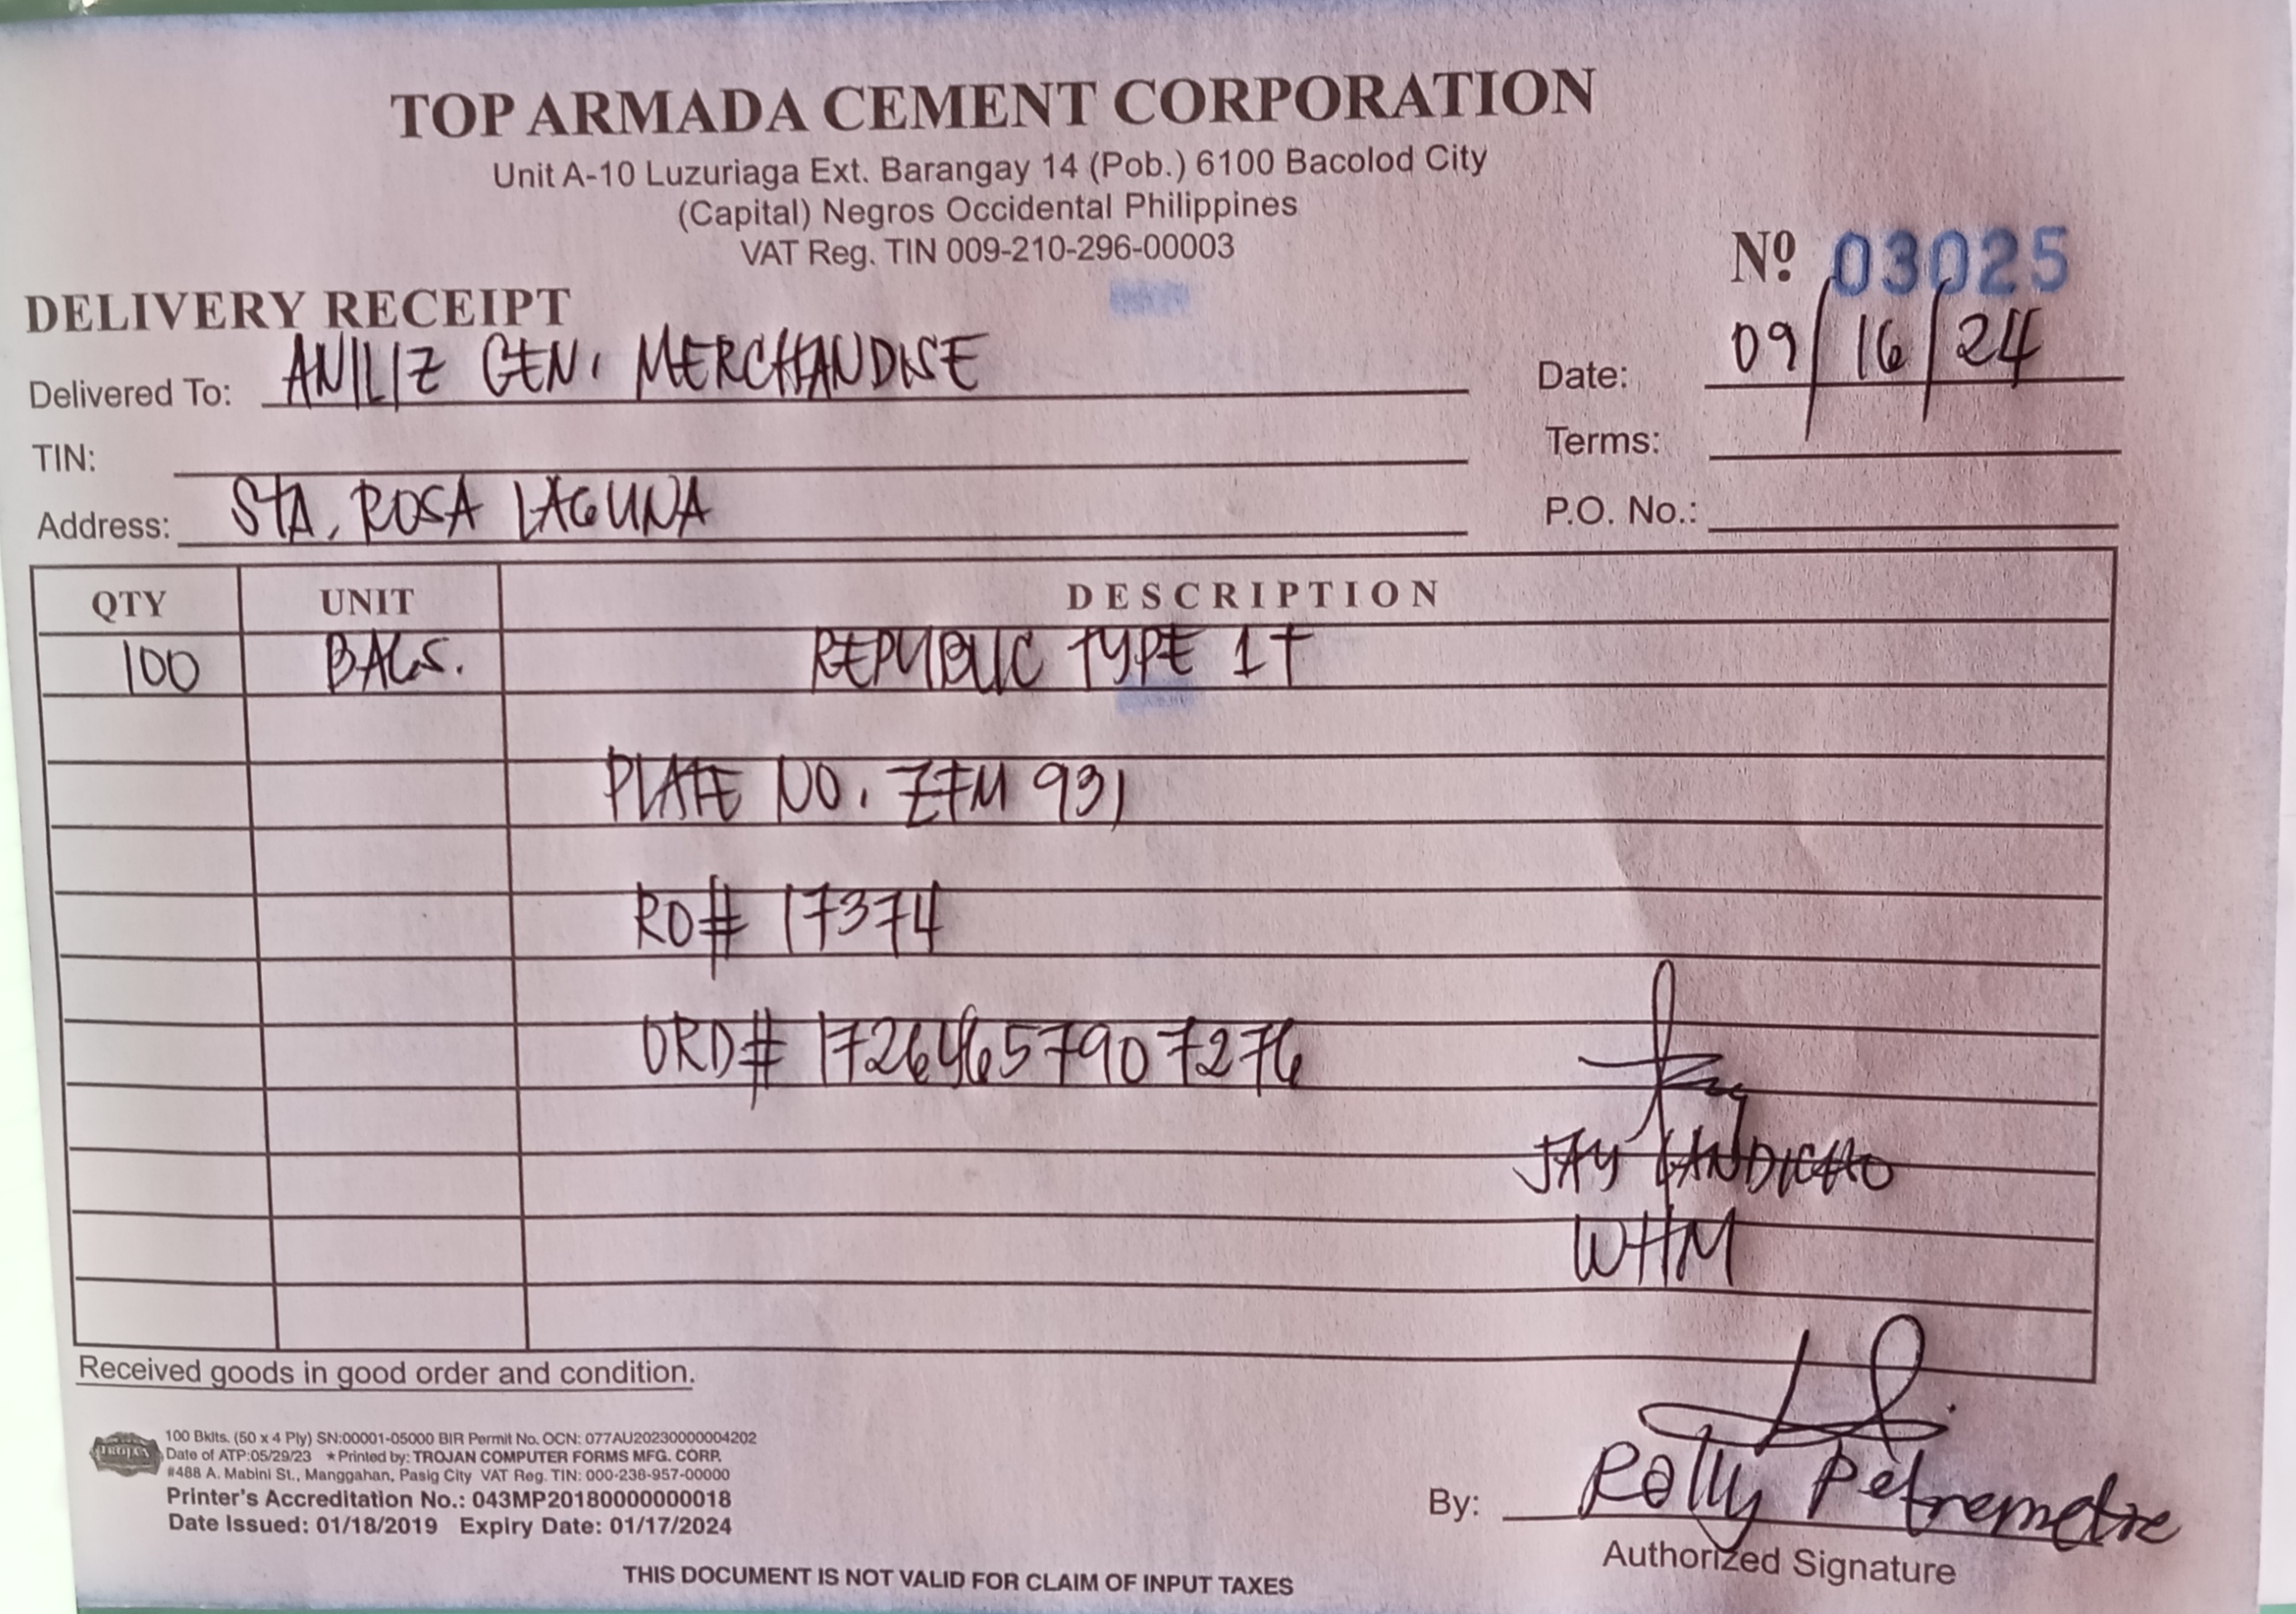 TOP ARMADA CEMENT CORPORATION
Unit A-10 Luzuriaga Ext. Barangay 14 (Pob.) 6100 Bacolod City
(Capital) Negros Occidental Philippines
VAT Reg. TIN 009-210-296-00003
Nº 03025
DELIVERY RECEIPT
Delivered To: ANILIZ GEN. MERCHANDISE
Date: 09/16/24
TIN:
Terms:
Address: STA. ROSA LAGUNA
P.O. No.:
QTY UNIT DESCRIPTION
100 BAGS. REPUBLIC TYPE 1T
PLATE NO. ZFM 931
RO# 17374
ORD# 1726465790 7276
JAY LANDICHO
WHM
Received goods in good order and condition.
TROJAN
100 Bklts. (50 x 4 Ply) SN:00001-05000 BIR Permit No. OCN: 077AU20230000004202
Date of ATP:05/29/23 *Printed by: TROJAN COMPUTER FORMS MFG. CORP.
#488 A. Mabini St., Manggahan, Pasig City VAT Reg. TIN: 000-238-957-00000
Printer's Accreditation No.: 043MP20180000000018
Date Issued: 01/18/2019 Expiry Date: 01/17/2024
By: Rolly Petremetre
Authorized Signature
THIS DOCUMENT IS NOT VALID FOR CLAIM OF INPUT TAXES